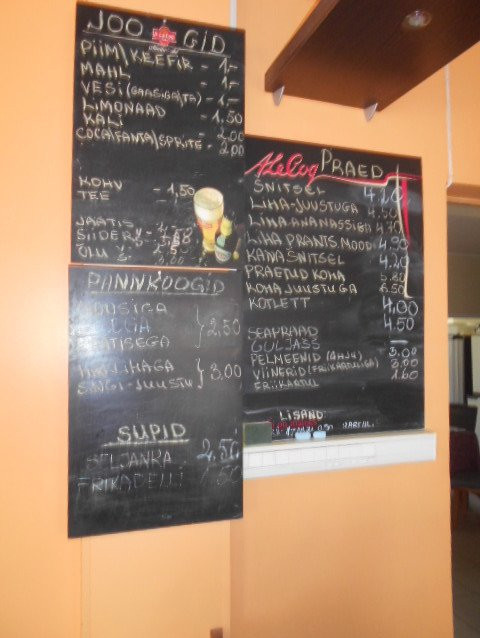 JOOGID
PIIM\KEEFIR - 1.-
MAHL - 1.-
VESI (GAASIGA\TA) - 1.-
LIMONAAD - 1,50
KALI 2,00
COCA\FANTA\SPRITE - 2,00
KOHV - 1,50
TEE
JÄÄTIS
SIIDER
ÕLU
PANNKOOGID
2,50
3,00
SINGI-JUUSTU
SUPID
SELJANKA 2.50
FRIKADELLI
A.Le Coq PRAED
ŠNITSEL 4.20
LIHA-JUUSTUGA 4.50
LIHA-ANANASSIGA 4.70
LIHA PRANTS.MOOD 4.90
KANAŠNITSEL 4.20
PRAETUD KOHA 5.80
KOHA JUUSTUGA 6.50
KOTLETT 4,00
SEAPRAAD 4.50
GULJAŠŠ
PELMEENID (AHJU) 3.00
VIINERID (FRIIKARTULIGA) 3.00
FRIIKARTUL 1.60
LISAND